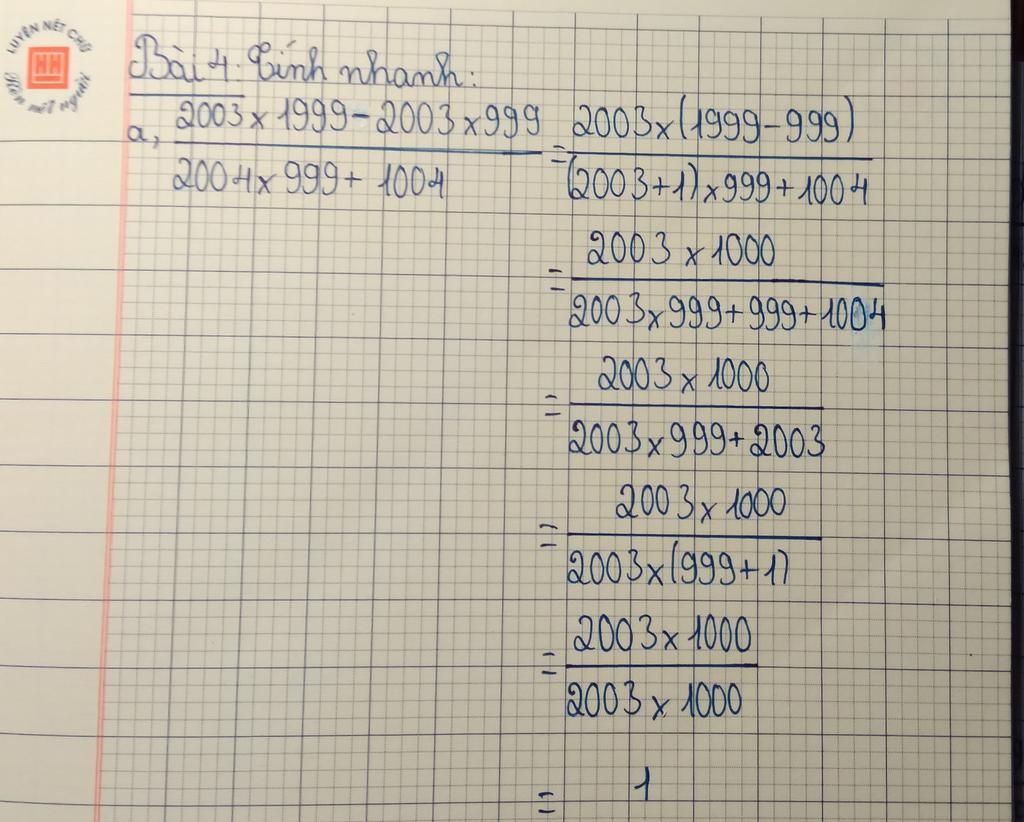 LUYỆN NÉT CHỮ
HH
Rèn nết người
Bài 4: Tính nhanh:
a, 2003 x 1999 - 2003 x 999 / 2004 x 999 + 1004 = 2003 x (1999 - 999) / (2003 + 1) x 999 + 1004
= 2003 x 1000 / 2003 x 999 + 999 + 1004
= 2003 x 1000 / 2003 x 999 + 2003
= 2003 x 1000 / 2003 x (999 + 1)
= 2003 x 1000 / 2003 x 1000
= 1